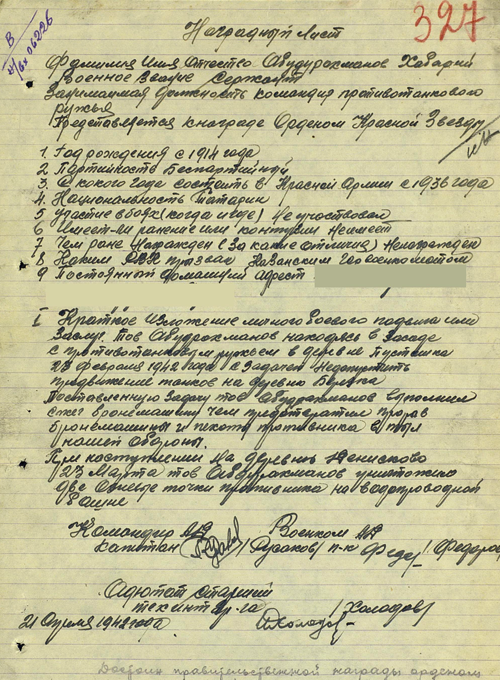 327
Наградный Лист
Фамилия Имя Отчество Абдурахманов Хабадий
Военное Звание Сержант
Занимаемая должность командир противотанкового
ружья
Представляется к награде Орденом Красной Звезды
1. Год рождения с 1914 года
2 Партийность Беспартийный
3. С кокого года состоить в Красной Армии с 1936 года
4. Национальность Татарин
5 Участие в боях (когда и где) Не участвовал
6 Имеет-ли ранение или контузии Не имеет
7 Чем ране награжден (за какие отличия) Ненагражден
8 Каким РВК призван Казанским Горвоенкоматом
9 Постоянный домашний адрест
I Краткое изложение личного боевого подвига или
Заслуг. Тов Абдурахманов находясь в Засаде
с противотанковым ружьем в деревне Пустошка
23 февраля 1942 года с Задачей Недопустить
продвижение танков на деревню
Поставленную Задачу тов Абдурахманов выполнил
сжег бронемашину чем предотвратил прорыв
бронемашины и пехоты противника в тыл
нашей Обороны.
При наступлении на деревню Денисково
23 Марта тов Абдурахманов уничтожил
две Огневые точки противника на водопроводной
башне
Командир Военком
капитан /Русаков/ п-к /Федоров
Адютат старший
техинтр-га /Холодов/
21 Апреля 1942 года
Достоин правительственной награды орденом